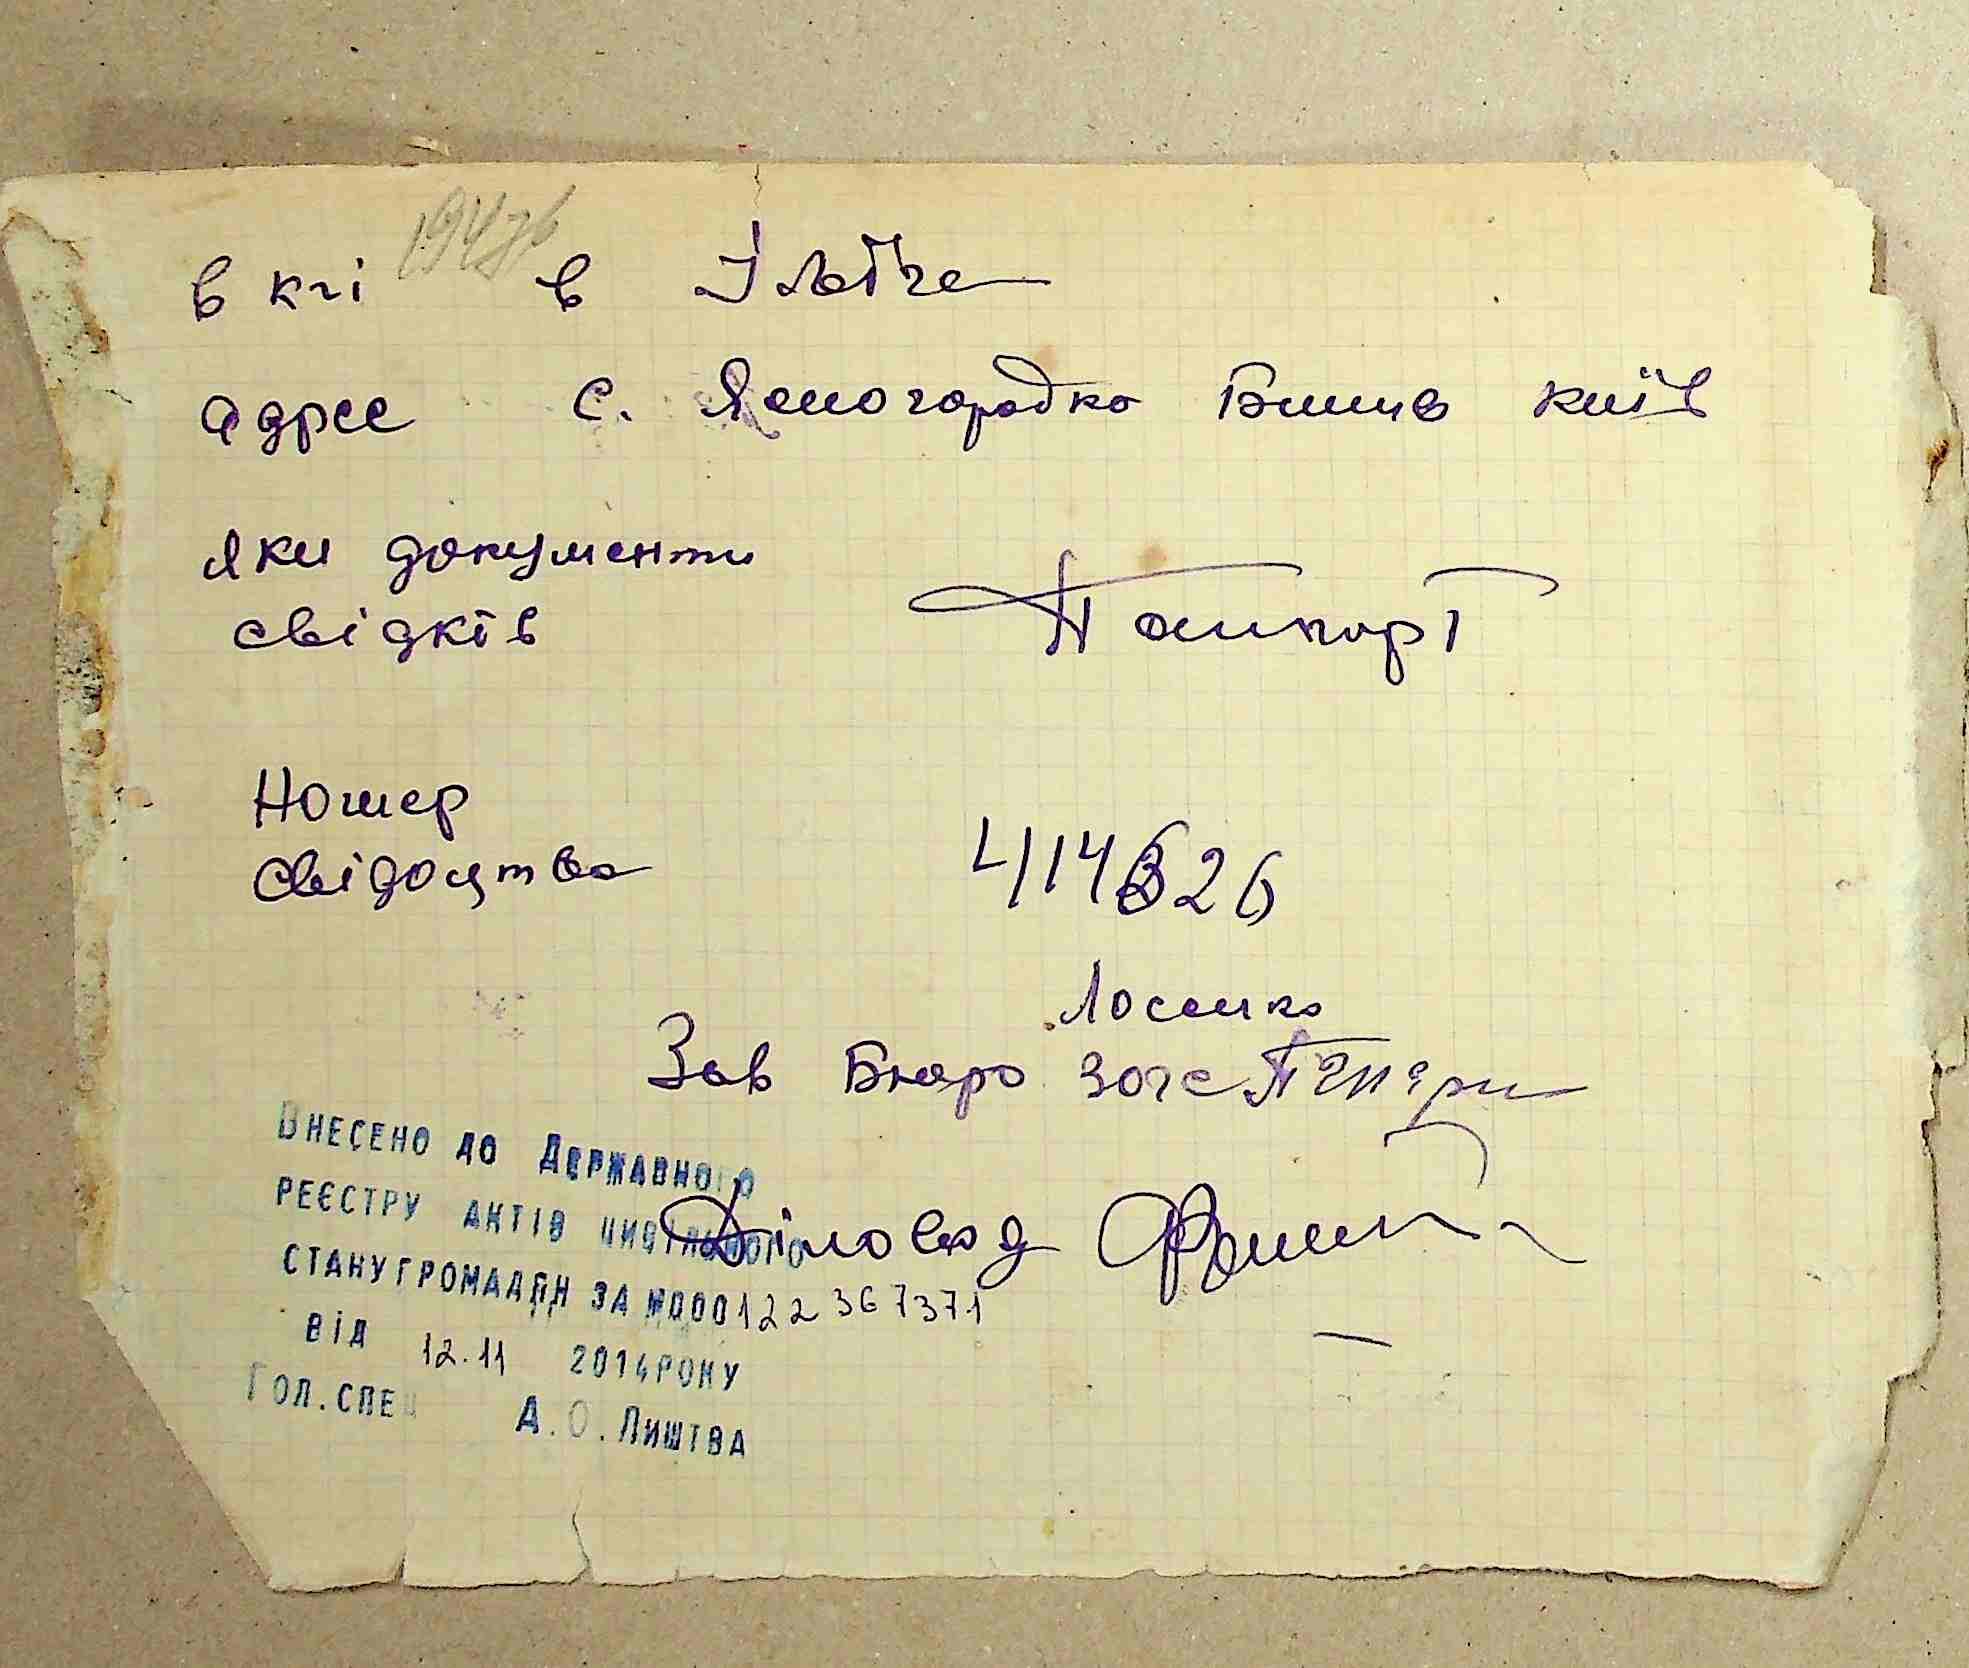 1947 б
в кгі в Ільїче
адрес с. Ясногородка Бишив Київ
яки документи
свідків Паспорт
Номер
свідоцтва 414326
Лосенко
Зав Бюро загс
ВНЕСЕНО ДО ДЕРЖАВНОГО
РЕЄСТРУ АКТІВ ЦИВІЛЬНОГО
Діловод
СТАНУ ГРОМАДЯН ЗА №00012236 7371
ВІД 12.11 2014РОКУ
ГОЛ.СПЕЦ А.О.ЛИШТВА